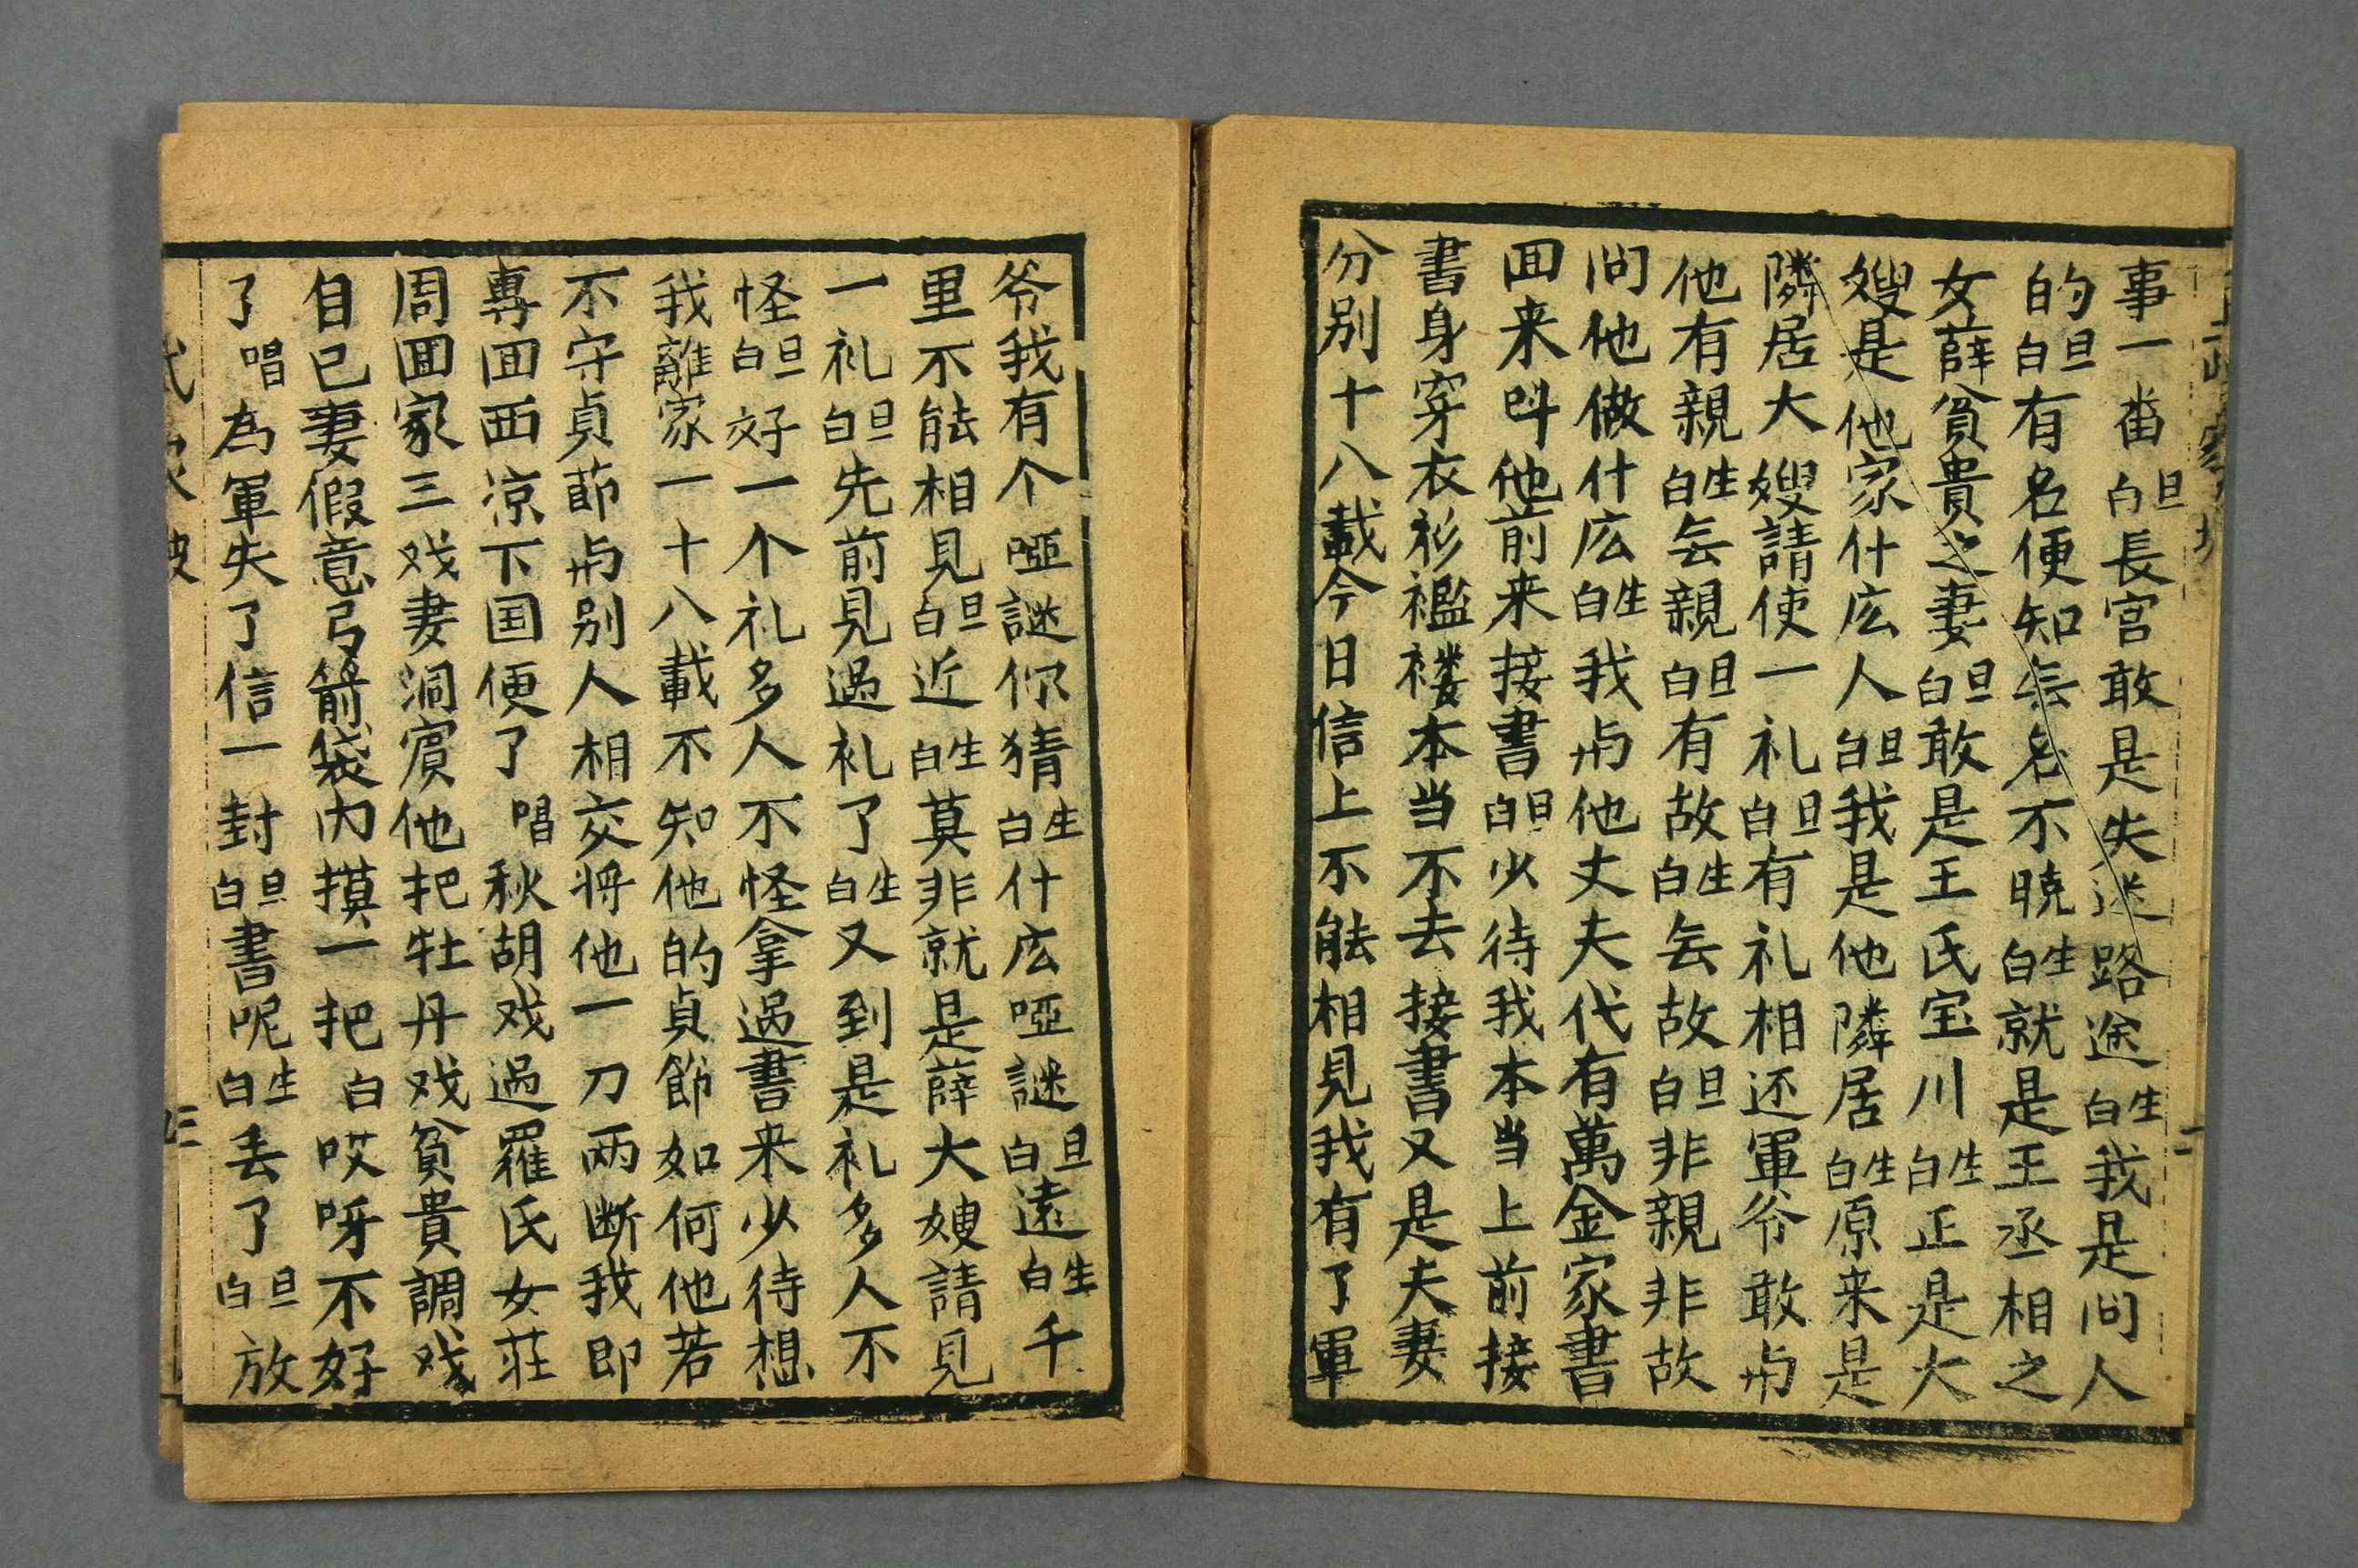 事一畨旦白長官敢是失迷路途生白我是问人
的旦白有名便知㐀名不晓生白就是王丞相之
女薛貧貴之妻旦白敢是王氏宝川生白正是大
嫂是他家什広人旦白我是他隣居生白原来是
隣居大嫂請使一礼旦白有礼相还軍爷敢与
他有親生白无親旦白有故生白无故旦白非親非故
问他做什広生白我与他丈夫代有萬金家書
囬来呌他前来接書旦白少待我本当上前接
書身穿衣衫襤褸本当不去接書又是夫妻
分别十八載今日信上不能相見我有了軍
爷我有个啞謎你猜生白什広啞謎旦白遠生白千
里不能相見旦白近生白莫非就是薛大嫂請見
一礼旦白先前見過礼了生白又到是礼多人不
怪旦白好一个礼多人不怪拿過書来少待想
我離家一十八載不知他的貞節如何他若
不守貞莭与别人相交将他一刀两断我即
専囬西凉下国便了唱秋胡戏過羅氏女莊
周囬家三戏妻洞賓他把牡丹戏貧貴調戏
自已妻假意弓箭袋内摸一把白哎呀不好
了唱為軍失了信一封旦白書呢生白丢了旦白放